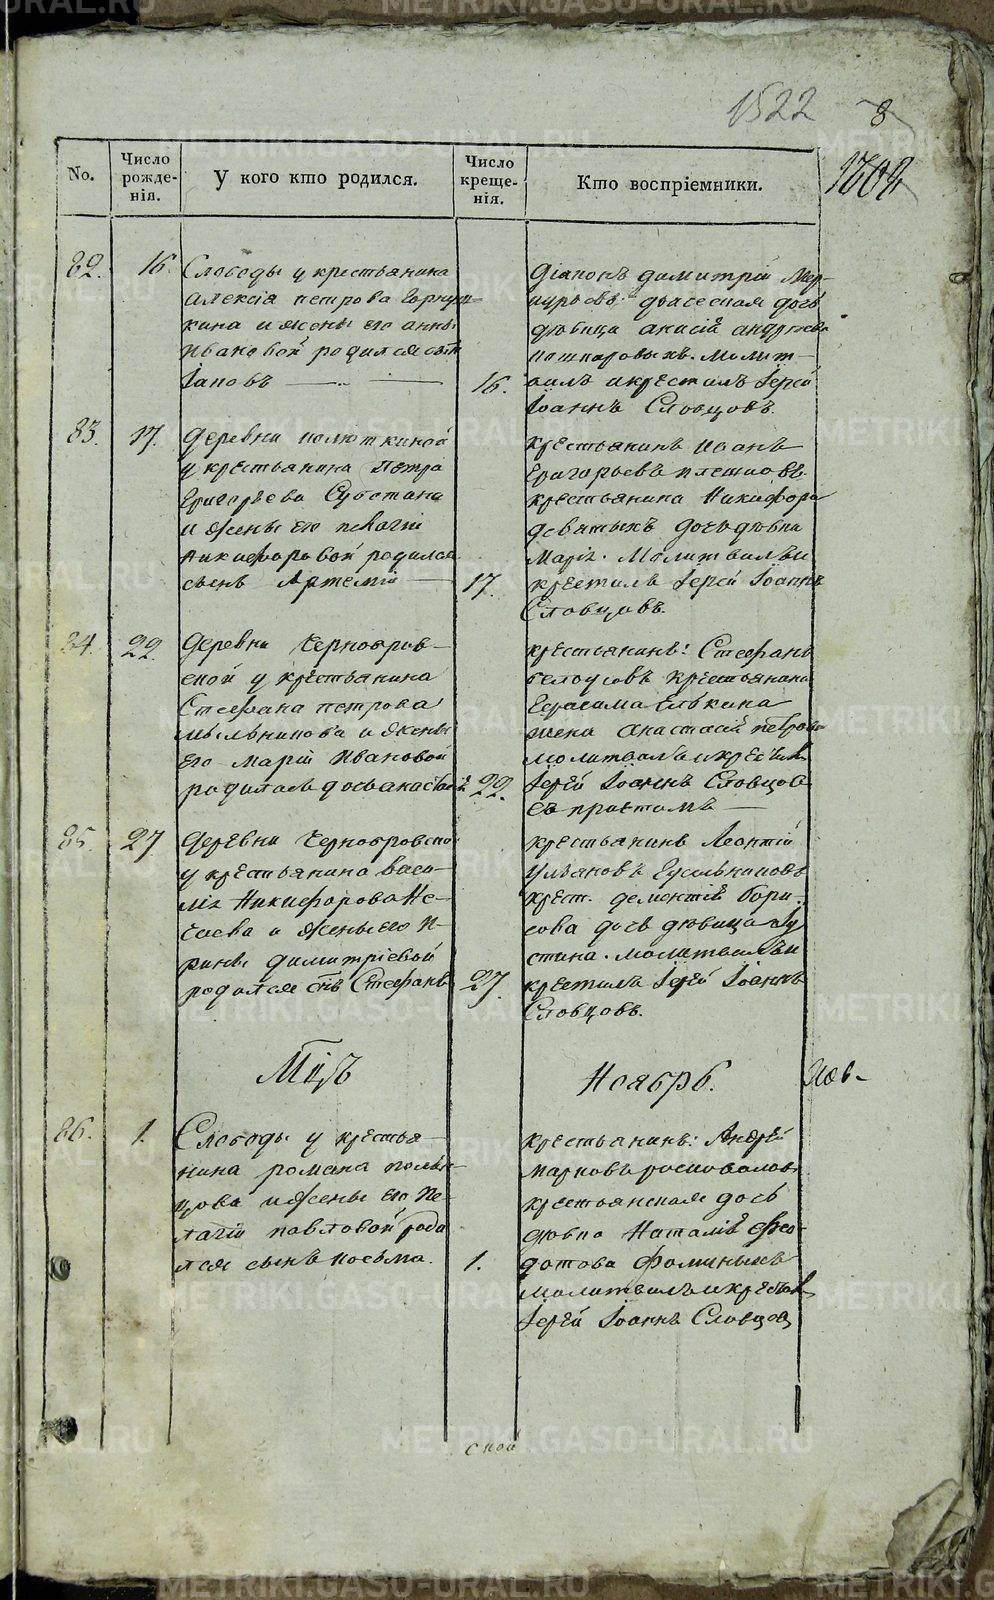 1522
8
No.
Число рожде-нія.
У кого кто родился.
Число креще-нія.
Кто воспріемники.
82.
16.
Слободы у крестьянина
Алексія петрова
кина и жены его анны
Ивановой родился сынъ
Іаковъ
16.
Діаконъ димитрій Мер-
курьевъ
дѣвица андреева
молит-
вилъ и крестилъ Іерей
Іоаннъ Словцовъ.
83.
17.
Деревни
у крестьянина Петра
Григорьева
и жены его пелагіи
Никифоровой родился
сынъ Артемій
17.
крестьянинъ Иванъ
Григорьевъ
крестьянина Никифора
девятыхъ дочь дѣвка
Марія. Молитвилъ и
крестилъ Іерей Іоаннъ
Словцовъ.
84.
22.
Деревни Чернояров-
ской у крестьянина
Стефана петрова
мыльникова и жены
его Маріи Ивановой
родилась дочь анастасія
22.
крестьянинъ: Стефанъ
белоусовъ крестьянина
Герасима Елькина
жена анастасія петрова
молитвилъ и крестилъ
Іерей Іоаннъ Словцовъ
съ притомъ
85.
27
Деревни Черноярской
у крестьянина васи-
лія Никифорова Не-
чаева и жены его И-
рины димитріевой
родился сынъ Стефанъ
27.
крестьянинъ Леонтій
Ульяновъ Гусельниковъ
крест. дементія бори-
сова дочь дѣвица Іу
стина. молитвилъ и
крестилъ Іерей Іоаннъ
Словцовъ.
Мцъ
Ноябрь.
Ноя-
86.
1.
Слободы у крестья-
нина романа поль-
цова и жены его Пе-
лагіи павловой роди
лся сынъ косьма.
1.
крестьянинъ: Андрей
марковъ
крестьянская дочь
дѣвка Наталія Фео-
дотова Фоминыхъ
молитвилъ и крестилъ
Іерей Іоаннъ Словцовъ